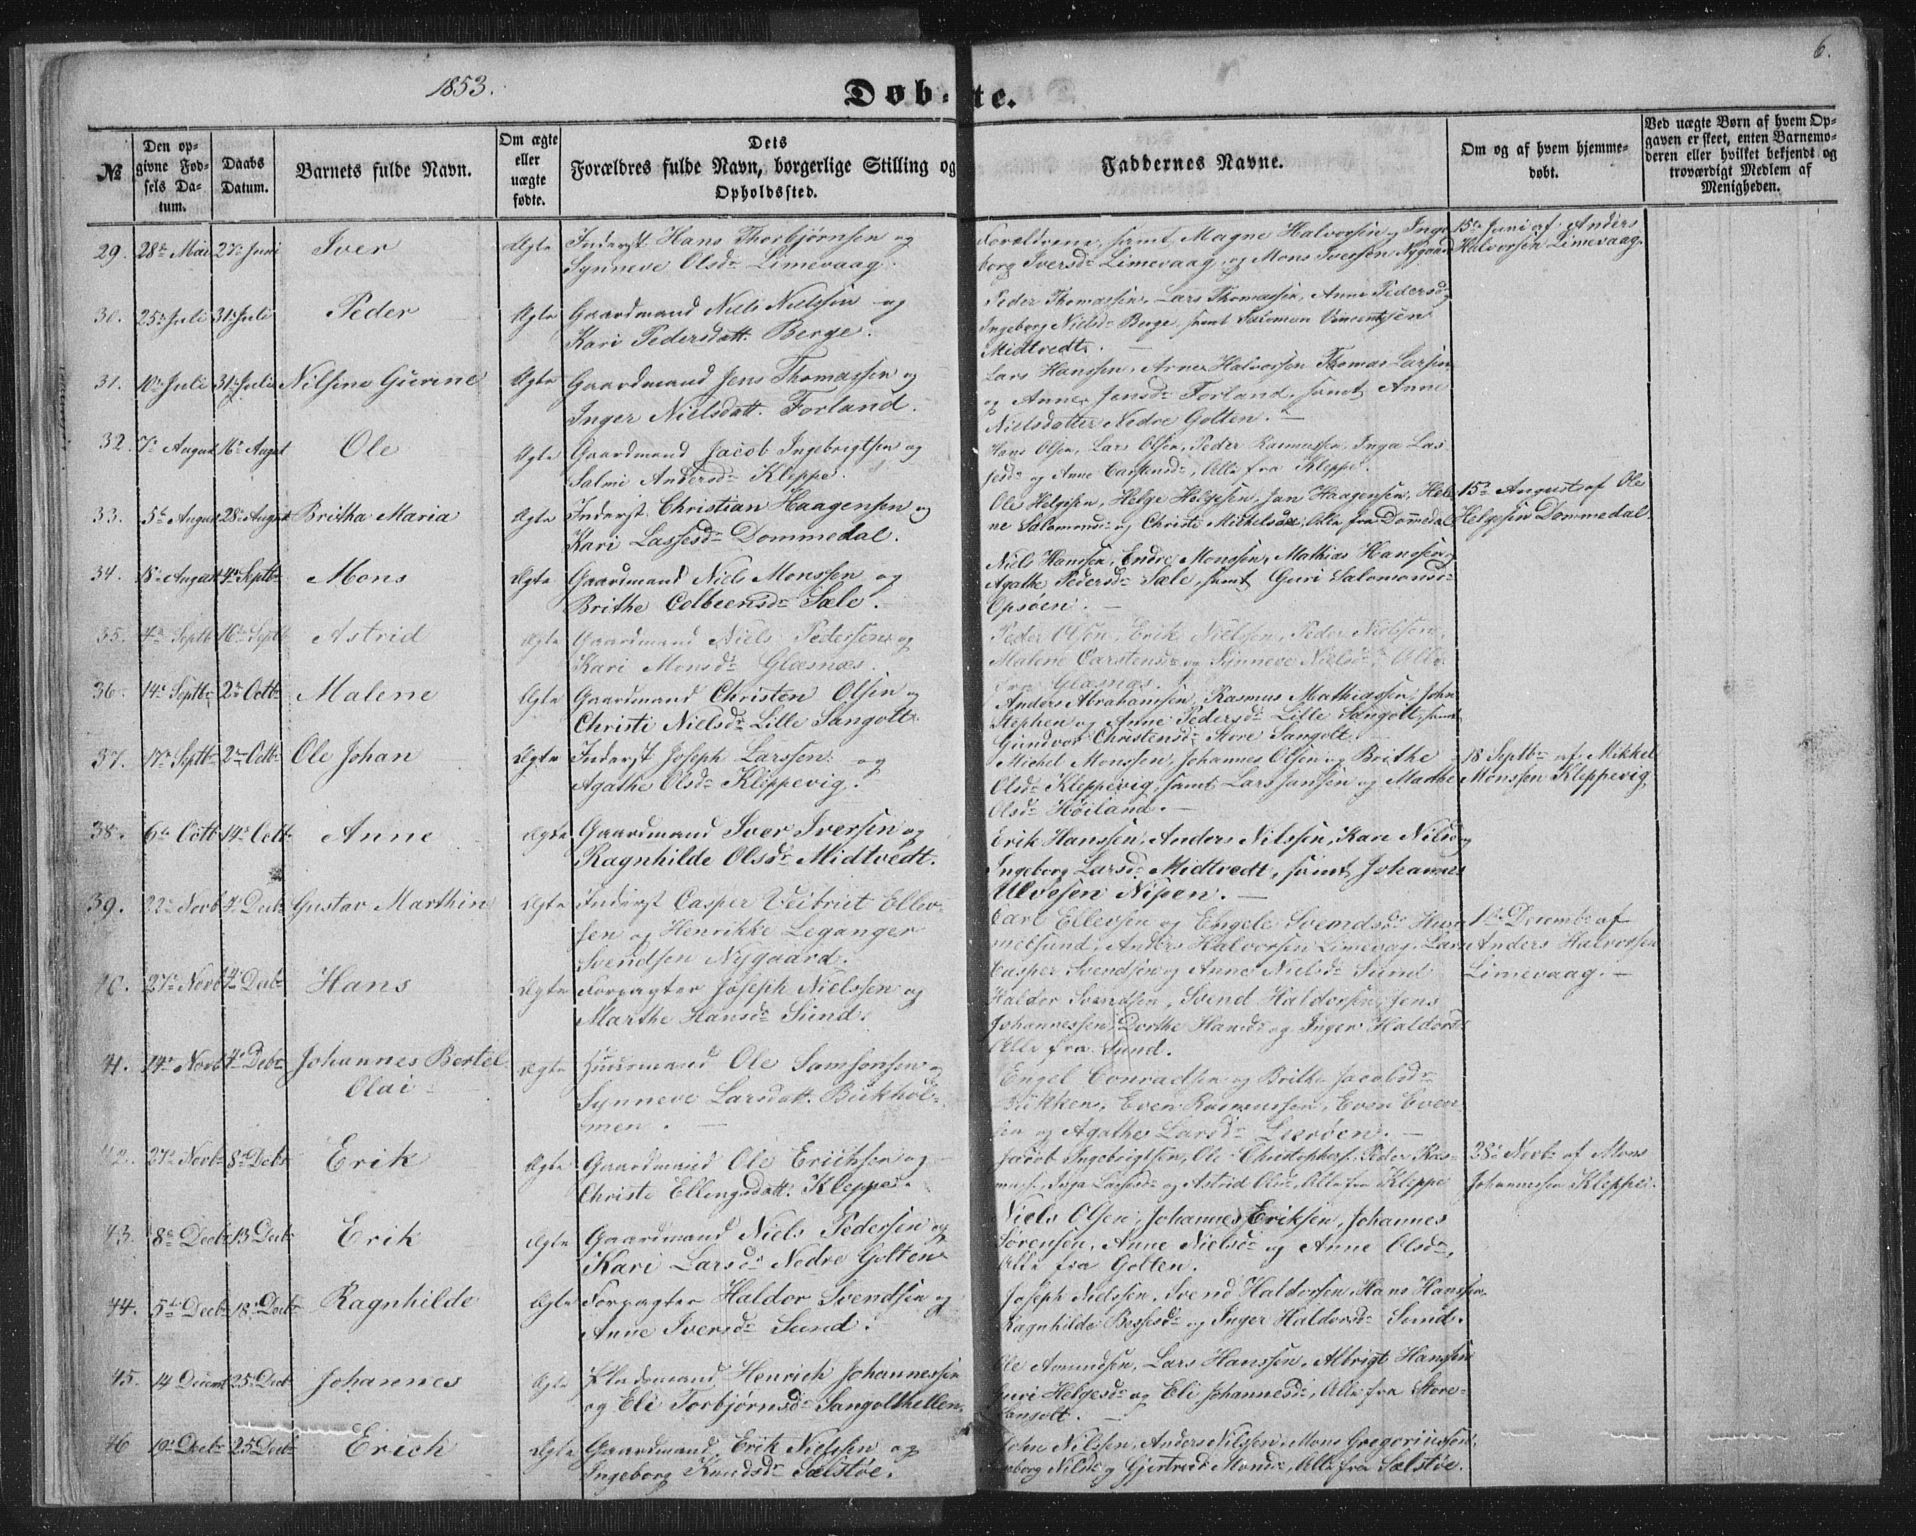 6.
1853.
Døbte.
№
Den opgivne Fødsels Datum.
Daabs Datum.
Barnets fulde Navn.
Om ægte eller uægte fødte.
Dets Forældres fulde Navn, borgerlige Stilling og Opholdssted.
Faddernes Navne.
Om og af hvem hjemmedøbt.
Ved uægte Børn af hvem Opgaven er skeet, enten Barnemoderen eller hvilket bekjendt og troværdigt Medlem af Menigheden.
29. 28de Mai 27de Juni Iver Ægte Inderst Hans Thorbjørnsen og
Synneve Olsdr Limevaag.
Forældrene, samt Magne Halvorsen, Inge-
borg Iversdr Limevaag og Mons Iversen Nygaard
15de Juni af Anders
Halvorsen Limevaag.
30. 25de Juli 31te Juli Peder Ægte Gaardmand Niels Nielssen og
Kari Pedersdatt. Berge.
Peder Thomassen, Lars Thomassen, Anne Pedersdr
Ingeborg Nielsdr Berge, samt Salomon Vincentsen
Midtvedt.
31. 10de Juli 31te Juli Nilsine Gurine Ægte Gaardmand Jens Thomassen og
Inger Nielsdatt. Forland.
Lars Hanssen, Arne Halvorsen Thomas Larsen
og Anne Jensdr Forland, samt Anne
Nielsdatter Nedre Golten.
32. 7de August 16de August Ole Ægte Gaardmand Jacob Ingebrigtsen og
Salmi Andersdr Kleppe.
Hans Olsen, Lars Olsen, Peder Rasmussen, Inga Las-
sesdr og Anne Carstensdr, Alle fra Kleppe.
33. 5te August 28de August Britha Maria Ægte Inderst Christian Haagensen og
Kari Lassesdr Dommedal.
Ole Helgesen, Helge Helgesen, Jan Haagensen, Hele-
ne Salomonsdr og Christi Michelsdr, Alle fra Dommedal
15de August af Ole
Helgesen Dommedal.
34. 18de August 4de Septbr Mons Ægte Gaardmand Niels Monssen og
Brithe Colbeensdr Sæle.
Niels Hanssen, Endre Monssen, Mathias Hanssen
Agathe Pedersdr Sæle, samt Guri Salomonsdr
Opsøen.
35. 4de Septbr 16de Septbr Astrid Ægte Gaardmand Niels Pedersen og
Kari Monsdr Glæsnæs.
Peder Olsen, Erik Nielsen, Peder Nielsen,
Malene Carstensdr og Synneve Nielsdr, Alle
fra Glæsnæs.
36. 14de Septbr 2den Octbr Malene Ægte Gaardmand Christen Olsen og
Christi Nielsdr Lille Sangolt.
Anders Abrahamsen, Rasmus Mathiassen, John
Stephen og Anne Pedersdr Lille Sangolt, samt
Gundvor Christensdr Store Sangolt.
37. 17de Septbr 2den Octbr Ole Johan Ægte Inderst Joseph Larssen og
Agathe Olsdr Kleppevig.
Michel Monssen, Johannes Olsen og Brithe
Olsdr Kleppevig, samt Lars Jansen og Marthe
Olsdr Høiland.
18 Septbr af Mikkel
Monssen Kleppevig
38. 6te Octbr 14de Octbr Anne Ægte Gaardmand Iver Iversen og
Ragnhilde Olsdr Midtvedt.
Erik Hanssen, Anders Nilssen, Kari Nilsdr
Ingeborg Larsdr Midtvedt, samt Johannes
Nipen.
39. 22de Novb 4de Decbr Gustav Marthin Ægte Inderst Casper Ellev-
sen og Henrikke Leganger
Svendsen Nygaard.
Carl Ellevsen og Engele Svendsdr
Anders Halvorsen Limevaag, Lars
Casper Svendsen og Anne Nielsdr Sund
1ste Decembr af
Anders Halvorssen
Limevaag.
40. 27de Novb 4de Decbr Hans Ægte Forpagter Joseph Nielssen og
Marthe Hansdr Sund.
Haldor Svendsen, Svend Haldorsen, Jens
Johannessen, Dorthe Hansdr og Inger Haldorsdr
Alle fra Sund.
41. 14de Novb 4de Decbr Johannes Bertel
Olai Ægte Huusmand Ole Samsonsen og
Synneve Larsdatt. Birkhol-
men.
Engel Conradsen og Brithe Jacobsdr
Bukken, Even Rasmussen, Even Even-
sen og Agathe Larsdr Lerøen.
42. 27de Novbr 8de Decbr Erik Ægte Gaardmand Ole Eriksen og
Christi Ellingsdatt. Kleppe.
Jacob Ingebrigtsen, Ole Christophers., Peder Ras-
muss., Inga Lassesdr og Astrid Olsdr, Alle fra Kleppe
28de Novbr af Mons
Johannessen Kleppe.
43. 8de Decbr 13 Decbr Erik Ægte Gaardmand Niels Pedersen og
Kari Larsdr Nedre Golten
Niels Olsen, Johannes Eriksen, Johannes
Sørensen, Anne Nielsdr og Anne Olsdr,
Alle fra Golten.
44. 5te Decbr 18de Decbr Ragnhilde Ægte Forpagter Haldor Svendsen og
Anne Iversdr Sund.
Joseph Nielsen, Svend Haldorsen, Hans Hanssen,
Ragnhilde Bessesdr og Inger Haldorsdr Sund.
45. 14 Decembr 25 Decbr Johannes Ægte Pladsmand Henrich Johannessen
og Eli Torbjørnsdr Sangolthellen.
Ole Amundsen, Lars Hanssen, Albrigt Hanssen
Guri Helgesdr og Eli Johannesdr, Alle fra Store-
Sangolt.
46 19de Decbr 25 Decbr Erich Ægte Gaardmand Erik Nielssen og
Ingeborg Knudsdr Sælstøe.
John Nilssen, Anders Nilssen, Mons Gregoriussen,
Ingeborg Nilsdr og Gjertrud Monsdr, Alle fra Sælstøe.